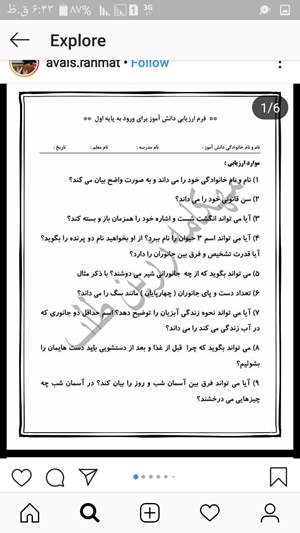 ۶:۴۳ ق.ظ ۸۷% 3G
Explore
avais.rahmat • Follow
1/6
** فرم ارزیابی دانش آموز برای ورود به پایه اول **
نام و نام خانوادگی دانش آموز : نام مدرسه : نام معلم : تاریخ :
موارد ارزیابی :
۱) نام و نام خانوادگی خود را می داند و به صورت واضح بیان می کند؟
۲) سن قانونی خود را می داند؟
۳) آیا می تواند انگشت شست و اشاره خود را همزمان باز و بسته کند؟
۴) آیا می تواند اسم ۳ حیوان را نام ببرد؟ از او بخواهید نام دو پرنده را بگوید؟
آیا قدرت تشخیص و فرق بین جانوران را دارد؟
۵) می تواند بگوید که از چه جانورانی شیر می دوشند؟ با ذکر مثال
۶) تعداد دست و پای جانوران ( چهارپایان ) مانند سگ را می داند؟
۷) آیا می تواند نحوه زندگی آبزیان را توضیح دهد؟ اسم حداقل دو جانوری که
در آب زندگی می کند را می داند؟
۸) می تواند بگوید که چرا قبل از غذا و بعد از دستشویی باید دست هایمان را
بشوئیم؟
۹) آیا می تواند فرق بین آسمان شب و روز را بیان کند؟ در آسمان شب چه
چیزهایی می درخشند؟